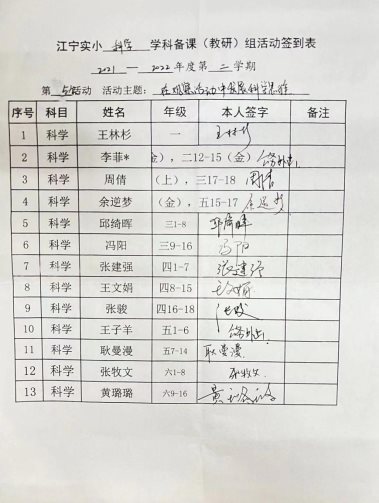 江宁实小 科学 学科备课（教研）组活动签到表
2021 — 2022 年度第 二 学期
第 活动 活动主题： 在观察活动中发展科学思维
序号 科目 姓名 年级 本人签字 备注
1 科学 王林杉 一 王林杉
2 科学 李菲* 金），二12-15（金）
3 科学 周倩 （上），三17-18 周倩
4 科学 余逆梦 （金），五15-17 余逆梦
5 科学 邱绮晖 三1-8 邱绮晖
6 科学 冯阳 三9-16 冯阳
7 科学 张建强 四1-7 张建强
8 科学 王文娟 四8-15 王文娟
9 科学 张骏 四16-18 张骏
10 科学 王子羊 五1-6
11 科学 耿曼漫 五7-14 耿曼漫
12 科学 张牧文 六1-8 张牧文
13 科学 黄璐璐 六9-16 黄璐璐